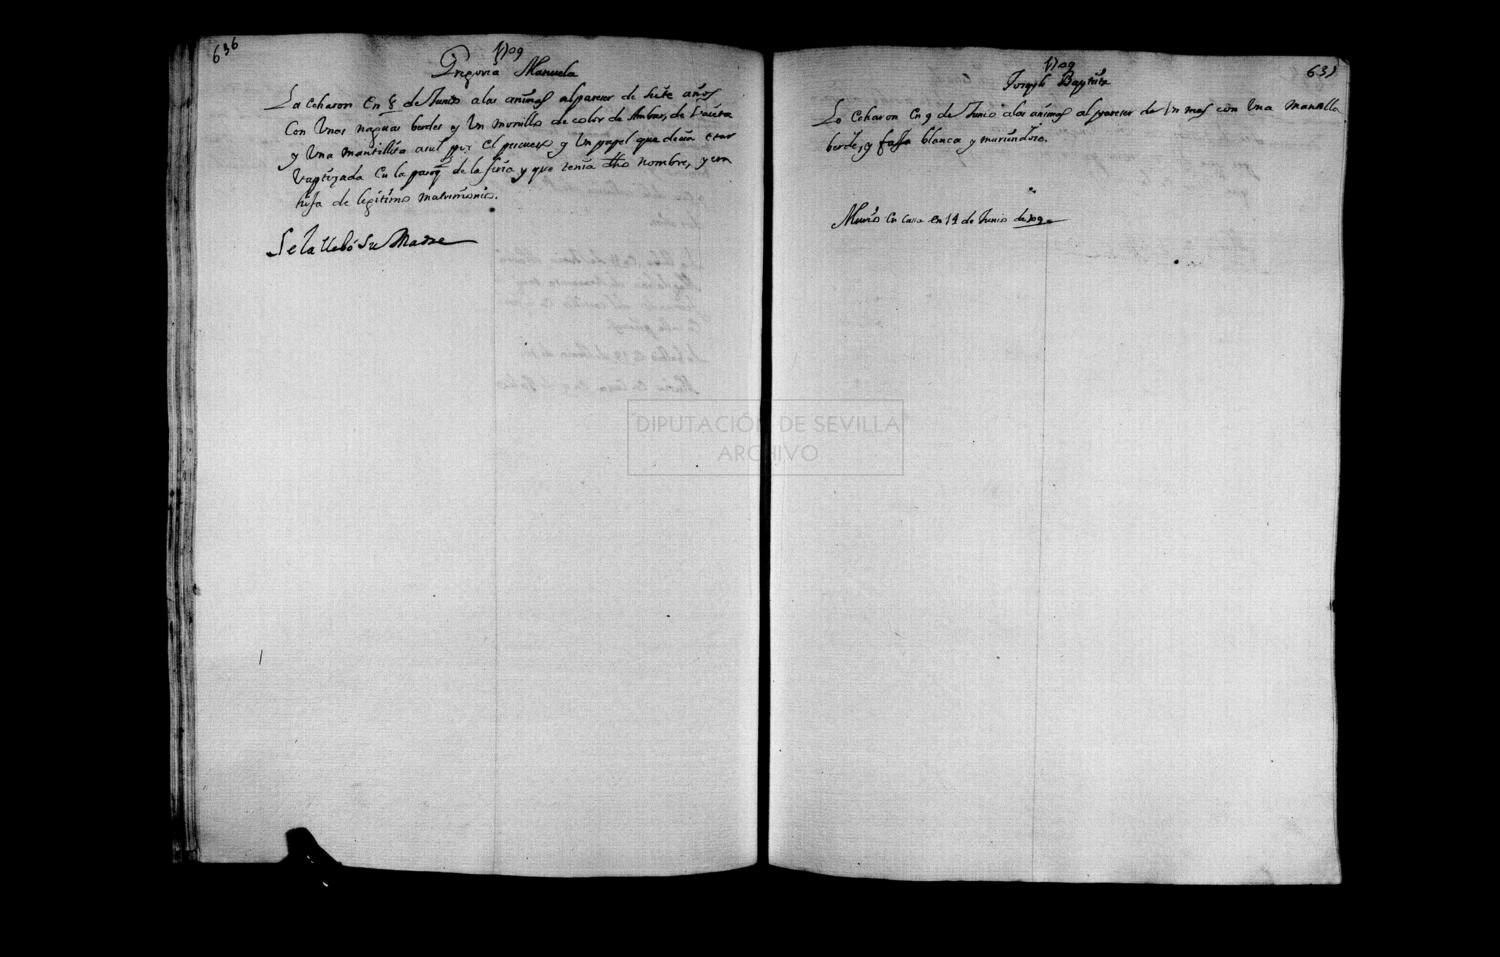 636
1709
Gregoria Manuela
La echaron en 8 de Junio a las animas al pareser de siete años
con Unas naguas berdes y Un monillo de color de Ambar, de
y Una mantillita asul por el pescueso y Un papel que desia estar
vaptizada en la parroqª de la feria y que tenia dho nombre, y era
hija de legitimo matrimonio.
Se la llebó Su Madre
631
1709
Joseph Baptista
Lo echaron en 9 de Junio a las animas al pareser de Un mes con Una mantilla
berde, y faxa blanca y muriendose.
Murio en casa en 14 de Junio de 709
DIPUTACIÓN DE SEVILLA
ARCHIVO